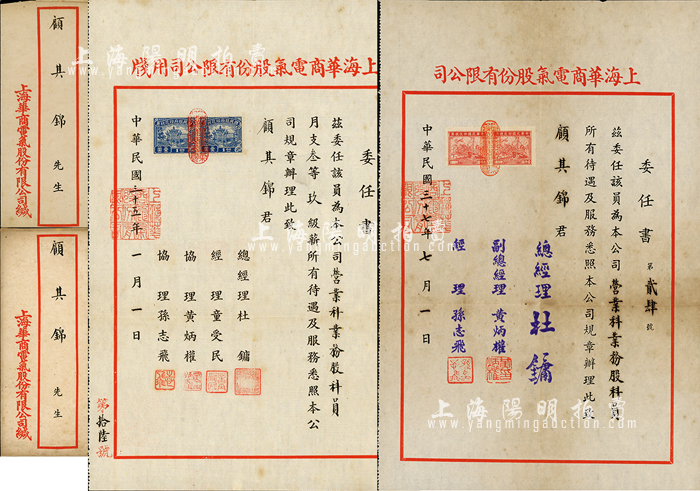 顧其錦 先生
上海華商電氣股份有限公司緘
顧其錦 先生
上海華商電氣股份有限公司緘
上海華商電氣股份有限公司用牋
委任書
茲委任該員為本公司營業科業務股科員
月支叁等玖級薪所有待遇及服務悉照本公
司規章辦理此致
顧其錦君
總經理杜鏞
經理童受民
協理黃炳權
協理孫志飛
中華民國三十五年一月一日
第拾陸號
上海華商電氣股份有限公司
委任書
第貳肆號
茲委任該員為本公司營業科業務股科員
所有待遇及服務悉照本公司規章辦理此致
顧其錦君
總經理杜鏞
副總經理黃炳權
經理孫志飛
中華民國三十七年七月一日
上海陽明拍賣
www.yangmingauction.com
上海陽明拍賣
www.yangmingauction.com